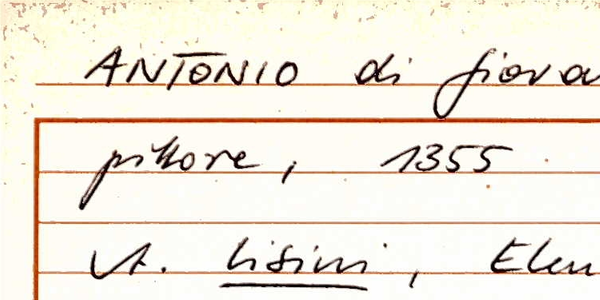 ANTONIO di Giova
pittore, 1355
Vt. Lisini, Elen